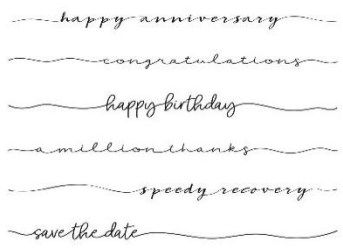 happy anniversary
congratulations
happy birthday
a million thanks
speedy recovery
save the date